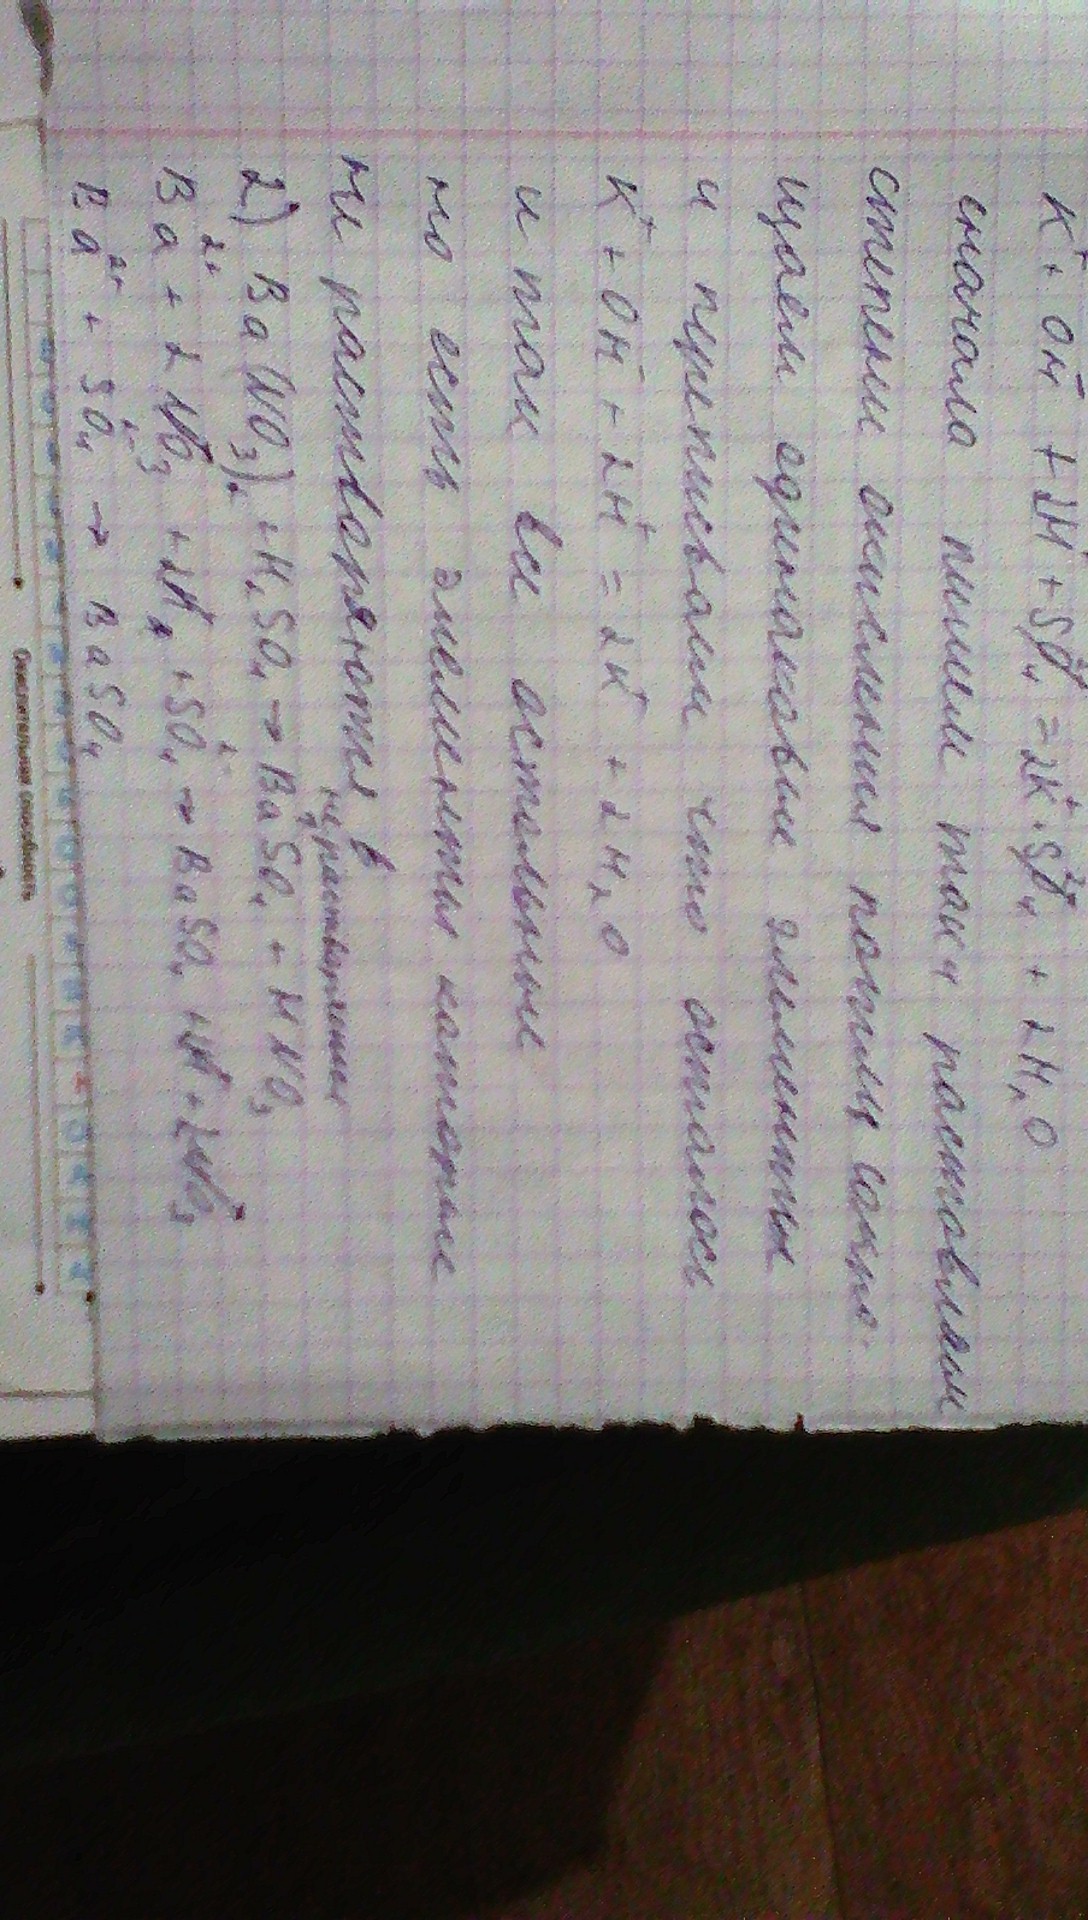 K⁺ + OH⁻ + 2H⁺ + SO₄²⁻ = 2K⁺ + SO₄²⁻ + 2H₂O
сначала пишем так и расставляем
степени окисления потом сокра-
щаем одинаковые элементы
и приписываем что осталось
K⁺ + OH⁻ + 2H⁺ = 2K⁺ + 2H₂O
и так все остальные
но есть элементы которые
не растворяются в
не растворение
2) Ba(NO₃)₂ + H₂SO₄ → BaSO₄ + HNO₃
Ba²⁺ + 2NO₃⁻ + 2H⁺ + SO₄²⁻ → BaSO₄ + 2H⁺ + 2NO₃⁻
Ba²⁺ + SO₄²⁻ → BaSO₄
Окислительная способность